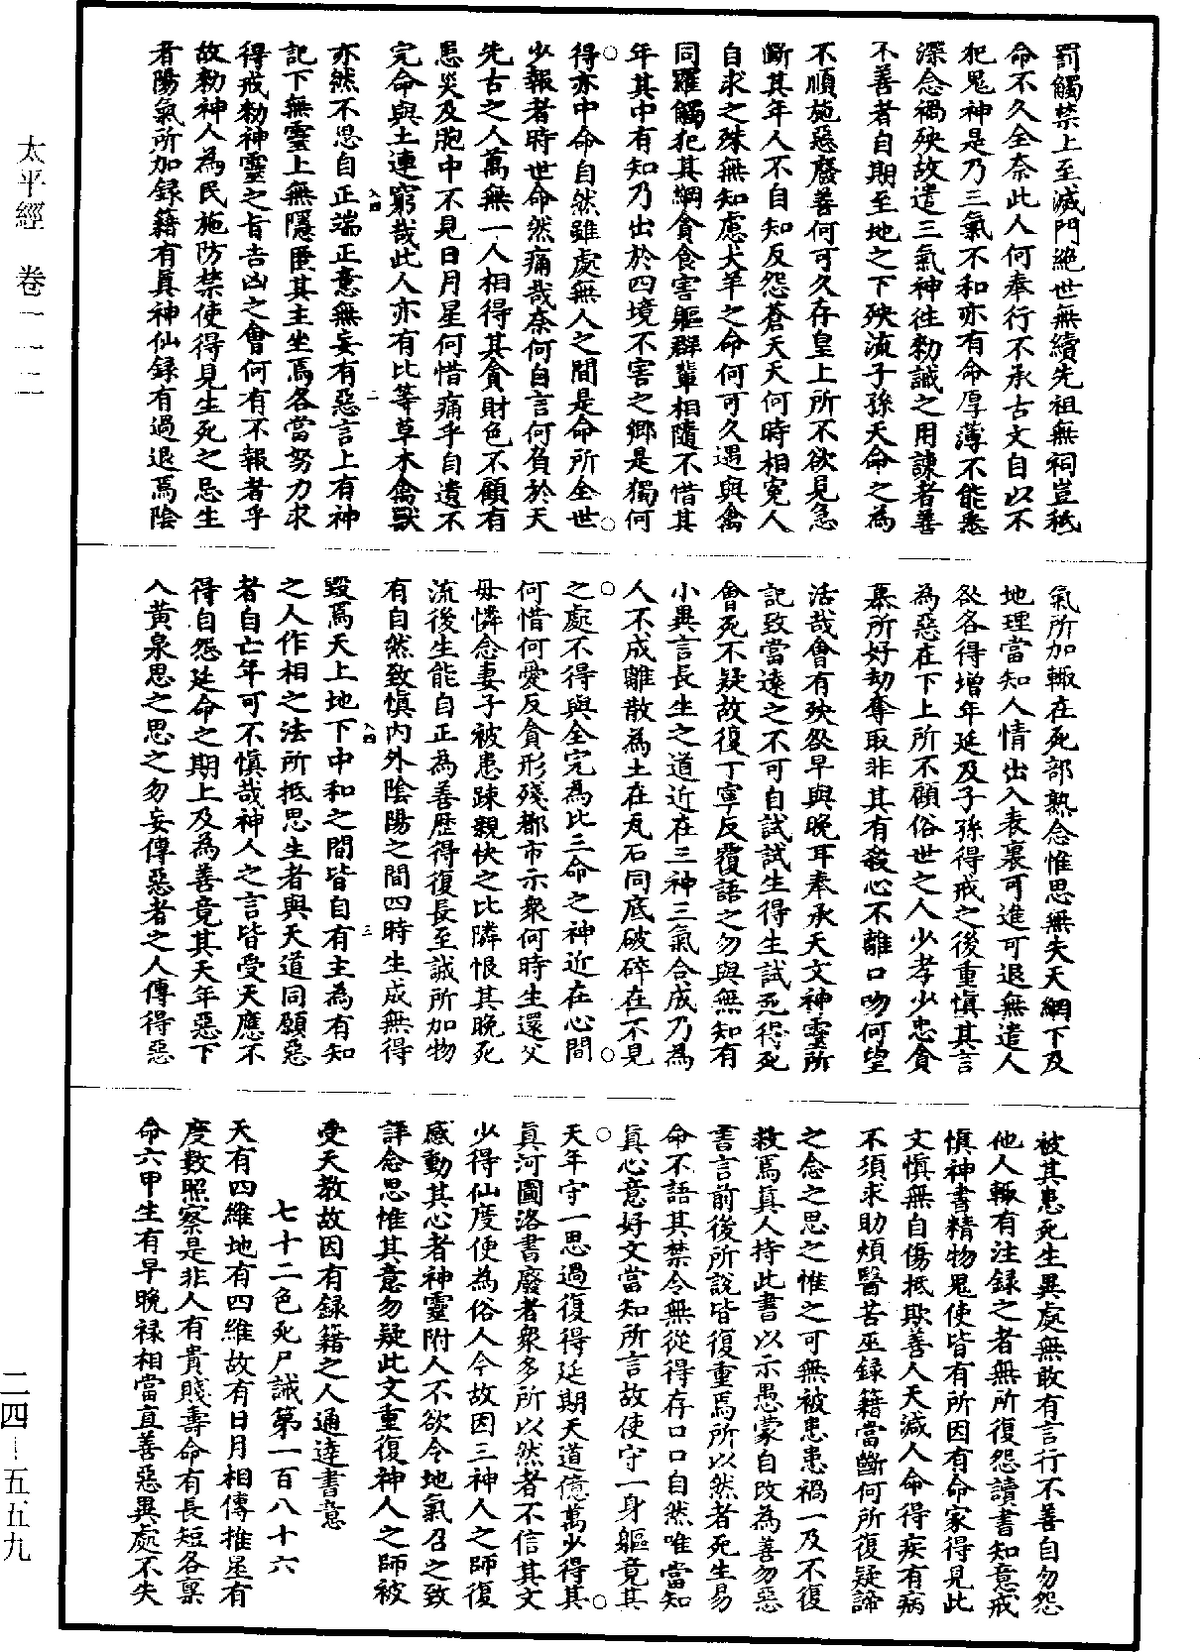 罰觸禁上至滅門絕世無續先祖無祠豈秪
命不久全奈此人何奉行不承古文自以不
犯鬼神是乃三氣不和亦有命厚薄不能悉
深念禍殃故遣三氣神往勑誡之用諫者善
不善者自期至地之下殃流子孫天命之為
不順施惡廢善何可久存皇上所不欲見急
斷其年人不自知反怨蒼天天何時相寃人
自求之殊無知慮犬羊之命何可久遇與禽
同羅觸犯其綱貪食害軀群輩相隨不惜其
年其中有知乃出於四境不害之鄉是獨何
得亦中命自然雖處無人之間是命所全世
少報者時世命然痛哉奈何自言何負於天
先古之人萬無一人相得其貪財色不顧有
患災及胞中不見日月星何惜痛乎自遺不
完命與土連窮哉此人亦有比等草木禽獸
亦然不思自正端正意無妄有惡言上有神
記下無靈上無隱匿其主坐焉各當努力求
得戒勑神靈之旨吉凶之會何有不報者乎
故勑神人為民施防禁使得見生死之忌生
者陽氣所加録籍有真神仙録有過退焉陰
入四
二
氣所加輙在死部熟念惟思無失天網下及
地理當知人情出入表裏可進可退無遣人
咎各得增年延及子孫得戒之後重慎其言
為惡在下上所不願俗世之人少孝少忠貪
慕所好劫奪取非其有殺心不離口吻何望
活哉會有殃咎早與晚耳奉承天文神靈所
記致當遠之不可自試試生得生試死得死
會死不疑故復丁寧反覆語之勿與無知有
小異言長生之道近在三神三氣合成乃為
人不成離散為土在瓦石同底破碎在不見
之處不得與全完為比三命之神近在心間
何惜何愛反貪形殘都市示衆何時生還父
母憐念妻子被患踈親快之比隣恨其晚死
流後生能自正為善歷得復長至誠所加物
有自然致慎内外陰陽之間四時生成無得
毀焉天上地下中和之間皆自有主為有知
之人作相之法所抵思生者與天道同願惡
者自亡年可不慎哉神人之言皆受天應不
得自怨延命之期上及為善竟其天年惡下
入黄泉思之思之勿妄傳惡者之人傳得惡
入四
三
被其患死生異處無敢有言行不善自勿怨
他人輙有注録之者無所復怨讀書知意戒
慎神書精物鬼使皆有所因有命家得見此
文慎無自傷抵欺善人天減人命得疾有病
不須求助煩醫苦巫録籍當斷何所復疑諦
之念之思之惟之可無被患患禍一及不復
救焉真人持此書以示愚蒙自改為善勿惡
書言前後所說皆復重焉所以然者死生易
命不語其禁令無從得存口口自然唯當知
真心意好文當知所言故使守一身軀竟其
天年守一思過復得延期天道億萬少得其
真河圖洛書廢者衆多所以然者不信其文
少得仙度便為俗人今故因三神人之師復
感動其心者神靈附人不欲令地氣召之致
詳念思惟其意勿疑此文重復神人之師被
受天教故因有録籍之人通達書意
七十二色死尸誡第一百八十六
天有四維地有四維故有日月相傳推星有
度數照察是非人有貴賤壽命有長短各稟
命六甲生有早晚禄相當直善惡異處不失
太平經 卷一一二
二四—五五九